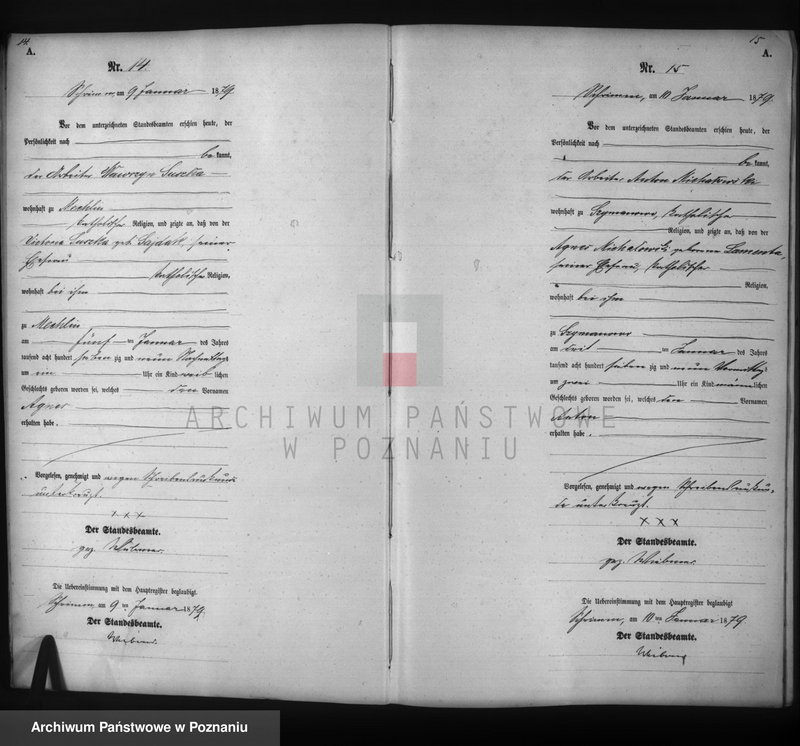 14.
A.
Nr. 14
Schrimm, am 9 Januar 1879.
Vor dem unterzeichneten Standesbeamten erschien heute, der
Persönlichkeit nach
be kannt,
der Arbeiter Wawrzyn Suszka
wohnhaft zu Mechlin
katholischer Religion, und zeigte an, daß von der
Victoria Suszka geb. seiner
Ehefrau
katholischer Religion,
wohnhaft bei ihm
zu Mechlin
am fünf ten Januar des Jahres
tausend acht hundert sieben zig und neun Nachmittags
um Uhr ein Kind weib lichen
Geschlechts geboren worden sei, welches den Vornamen
Agnes
erhalten habe.
Vorgelesen, genehmigt und wegen Schreibensunkunde
unterkreuzt.
x x x
Der Standesbeamte.
gez.
Die Uebereinstimmung mit dem Hauptregister beglaubigt
Schrimm, am 9 ten Januar 1879.
Der Standesbeamte.
15
A.
Nr. 15
Schrimm, am 10 Januar 1879
Vor dem unterzeichneten Standesbeamten erschien heute, der
Persönlichkeit nach
be kannt,
der Arbeiter Anton Michalowski
wohnhaft zu Szymanowo, katholischer
Religion, und zeigte an, daß von der
Agnes Michalowski geborenen
seiner Ehefrau, katholischer
Religion,
wohnhaft bei ihm
zu Szymanowo
am ten Januar des Jahres
tausend acht hundert sieben zig und neun Vormittags
um zwei Uhr ein Kind männ lichen
Geschlechts geboren worden sei, welches den Vornamen
Anton
erhalten habe.
Vorgelesen, genehmigt und wegen Schreibensunkun-
de unterkreuzt.
x x x
Der Standesbeamte.
gez.
Die Uebereinstimmung mit dem Hauptregister beglaubigt
Schrimm, am 10 ten Januar 1879
Der Standesbeamte.
ARCHIWUM PAŃSTWOWE
W POZNANIU
Archiwum Państwowe w Poznaniu